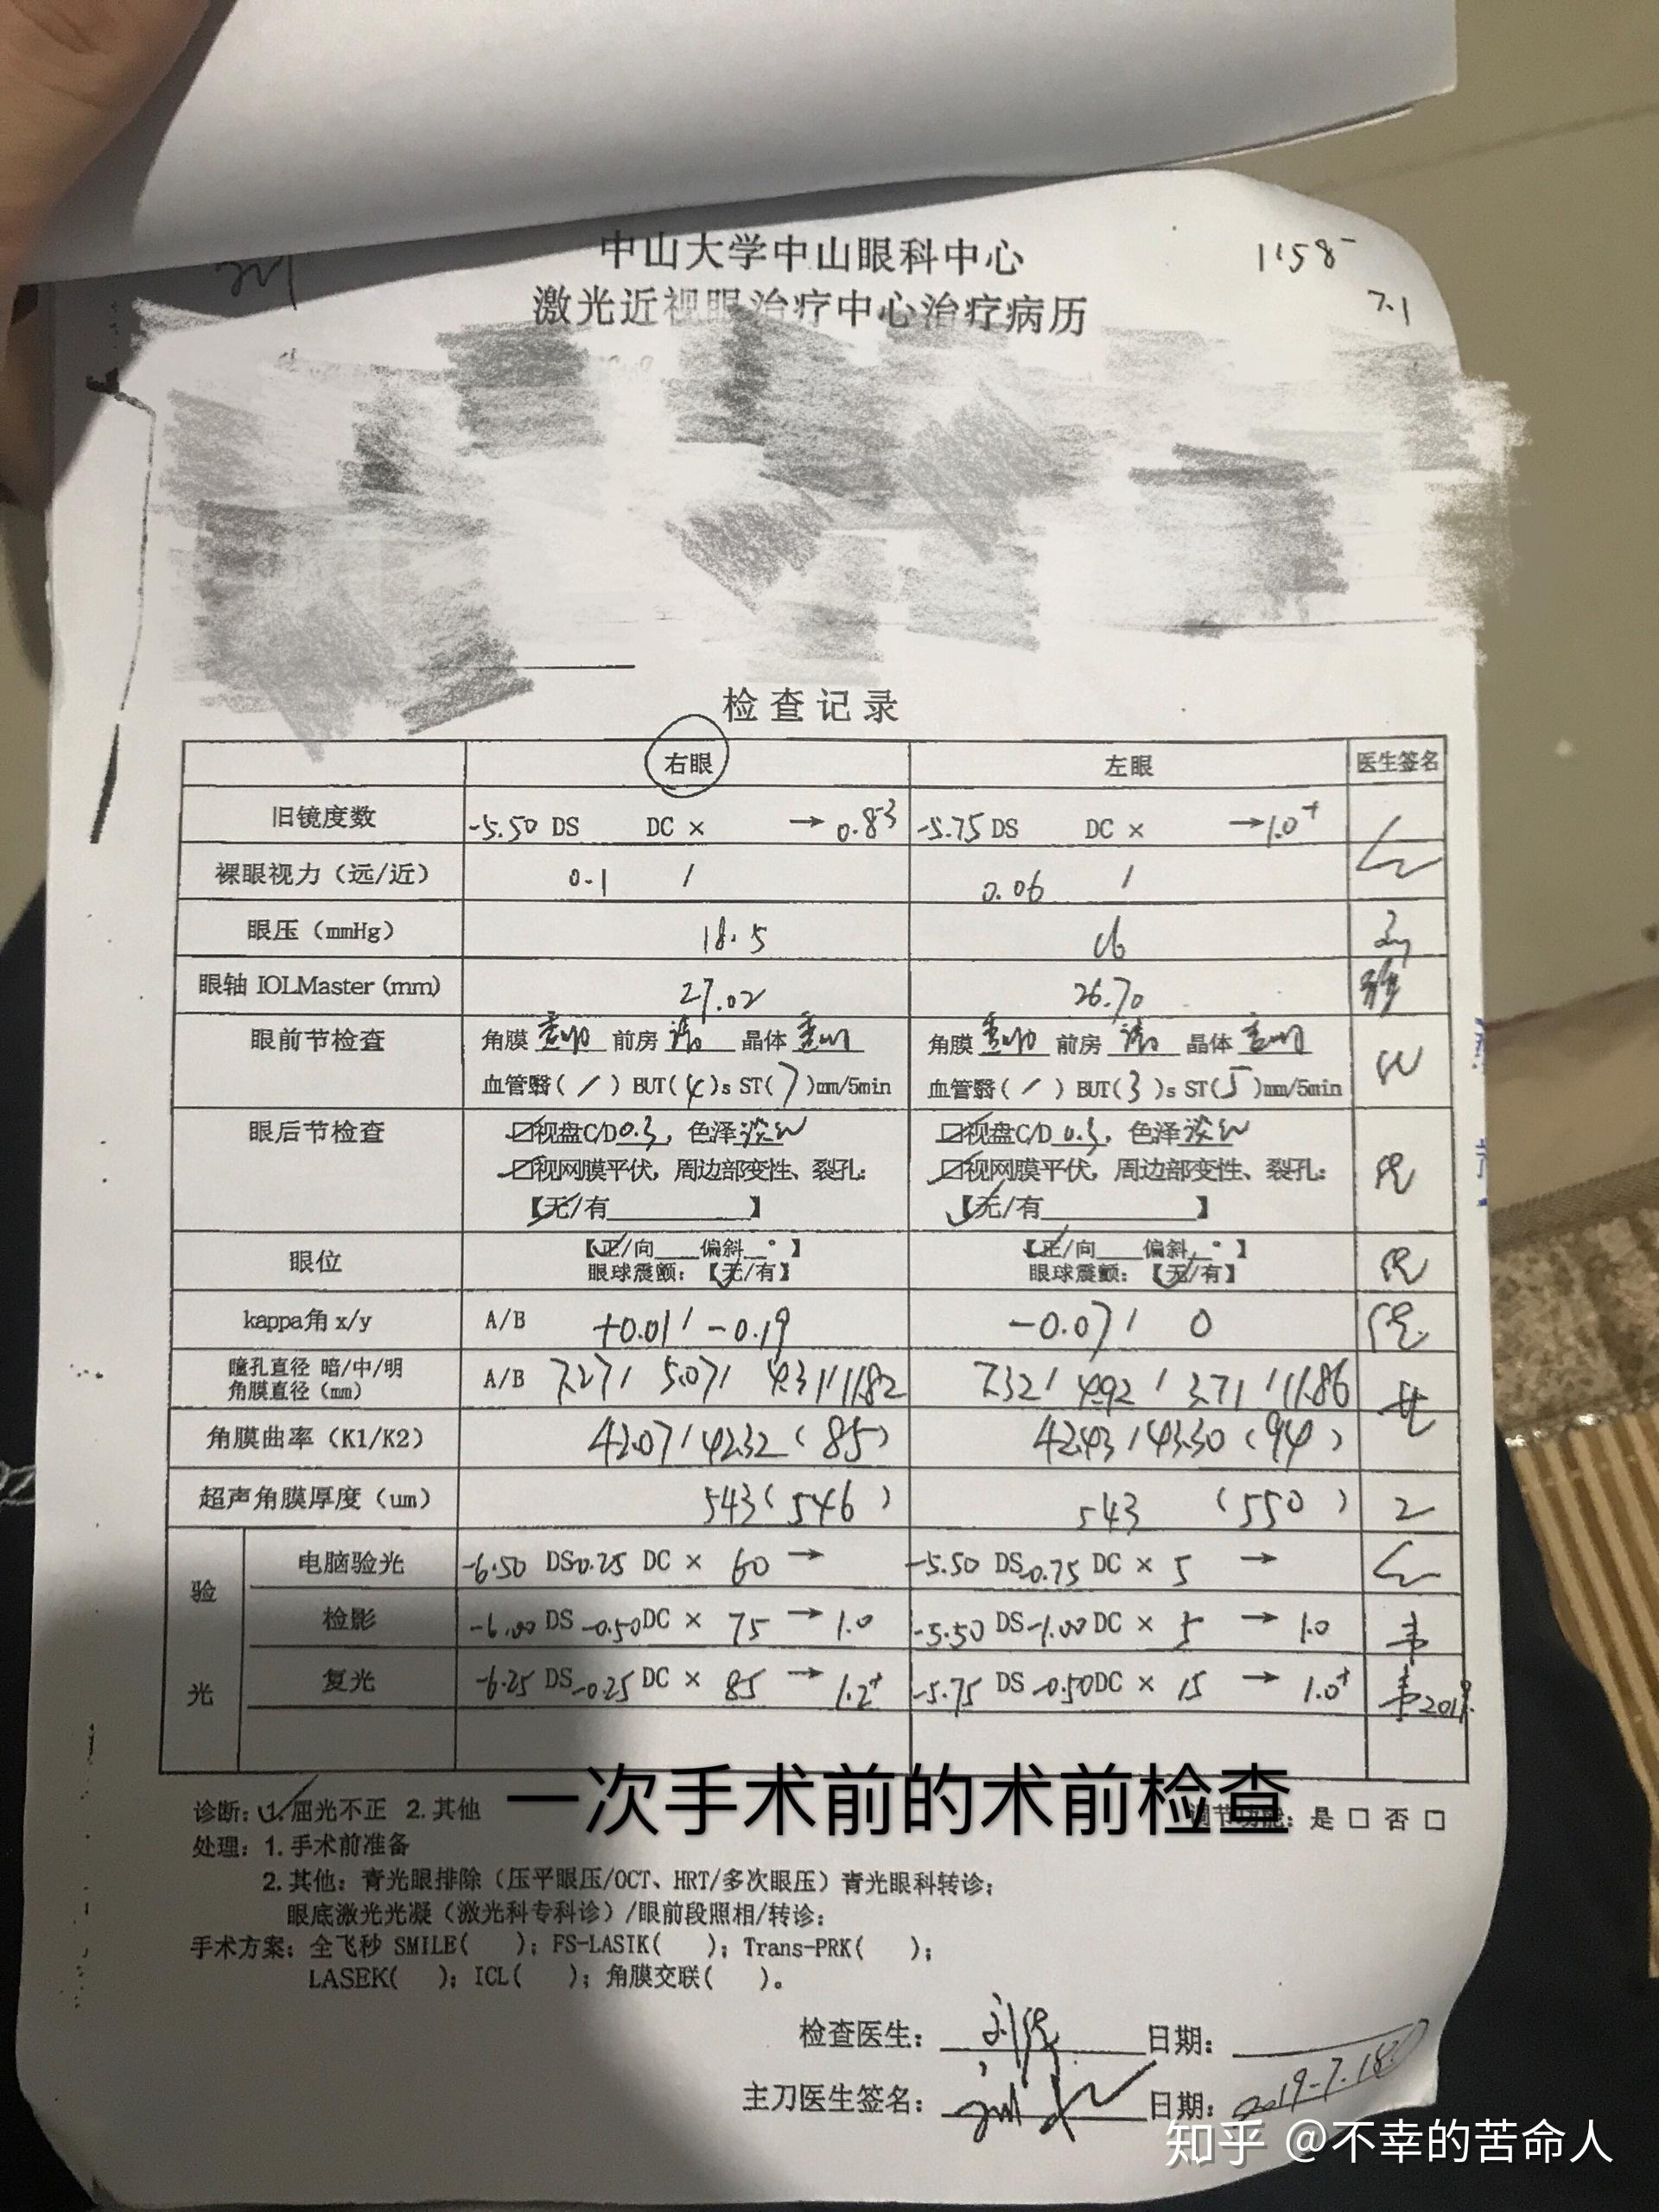 中山大学中山眼科中心
1158-
激光近视眼治疗中心治疗病历
7.1
检查记录
右眼 左眼 医生签名
旧镜度数 -5.50 DS DC × → 0.8-3 -5.75 DS DC × → 1.0+
裸眼视力（远/近） 0.1 / 0.06 /
眼压（mmHg） 18.5
眼轴 IOLMaster (mm) 27.02 26.70
眼前节检查 角膜 前房 晶体 角膜 前房 晶体
血管翳( / ) BUT(4)s ST(7)mm/5min 血管翳( / ) BUT(3)s ST(5)mm/5min
眼后节检查 视盘C/D 0.3, 色泽淡红 视盘C/D 0.3, 色泽淡红
视网膜平伏, 周边部变性、裂孔: 视网膜平伏, 周边部变性、裂孔:
【无/有】 【无/有】
眼位 【正/向 偏斜 °】 【正/向 偏斜 °】
眼球震颤: 【无/有】 眼球震颤: 【无/有】
kappa角 x/y A/B +0.01 / -0.19 -0.07 / 0
瞳孔直径 暗/中/明 A/B 7.27 / 5.07 / 4.31 / 11.82 7.32 / 4.92 / 3.71 / 11.86
角膜直径（mm）
角膜曲率（K1/K2） 42.07 / 42.32 (85) 42.43 / 43.30 (94)
超声角膜厚度（um） 543 (546) 543 (550)
验光
电脑验光 -6.50 DS -0.25 DC × 60 → -5.50 DS -0.75 DC × 5 →
检影 -6.00 DS -0.50 DC × 75 → 1.0 -5.50 DS -1.00 DC × 5 → 1.0
复光 -6.25 DS -0.25 DC × 85 → 1.2+ -5.75 DS -0.50 DC × 15 → 1.0+ 2019.
一次手术前的术前检查
诊断: 1.屈光不正 2.其他 调节功能: 是 □ 否 □
处理: 1.手术前准备
2.其他: 青光眼排除（压平眼压/OCT、HRT/多次眼压）青光眼科转诊;
眼底激光光凝（激光科专科诊）/眼前段照相/转诊;
手术方案: 全飞秒 SMILE( ); FS-LASIK( ); Trans-PRK( );
LASEK( ); ICL( ); 角膜交联( )。
检查医生: 日期:
主刀医生签名: 日期: 2019-7.18
知乎 @不幸的苦命人